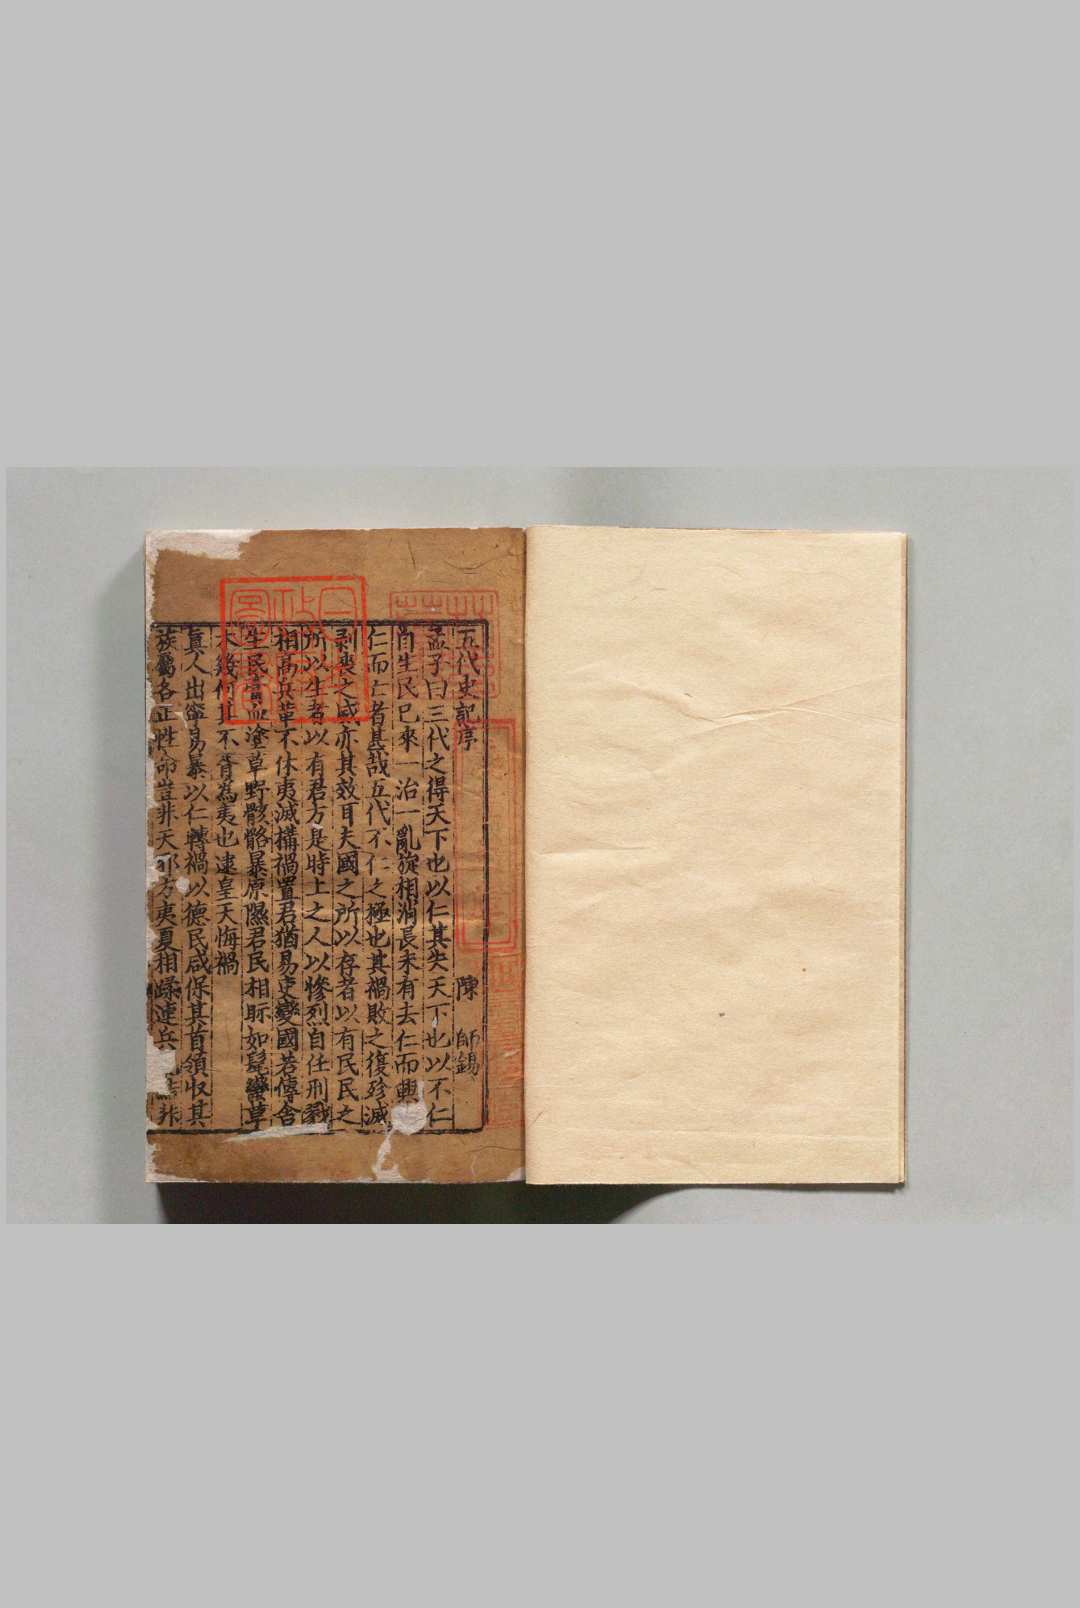 五代史記序
陳師錫
孟子曰三代之得天下也以仁其失天下也以不仁
自生民已來一治一亂旋相消長未有去仁而興
仁而亡者甚哉五代不仁之極也其禍敗之復殄滅
剥喪之威亦其效耳夫國之所以存者以有民民之
所以生者以有君方是時上之人以慘烈自任刑戮
相高兵革不休夷滅構禍置君猶易吏變國若傳舍
生民膏血塗草野骸骼暴原隰君民相眎如髦蠻草
木幾何其不胥為夷也逮皇天悔禍
真人出寧易暴以仁轉禍以德民咸保其首領収其
族屬各正性命豈非天邪方夷夏相蹂連兵